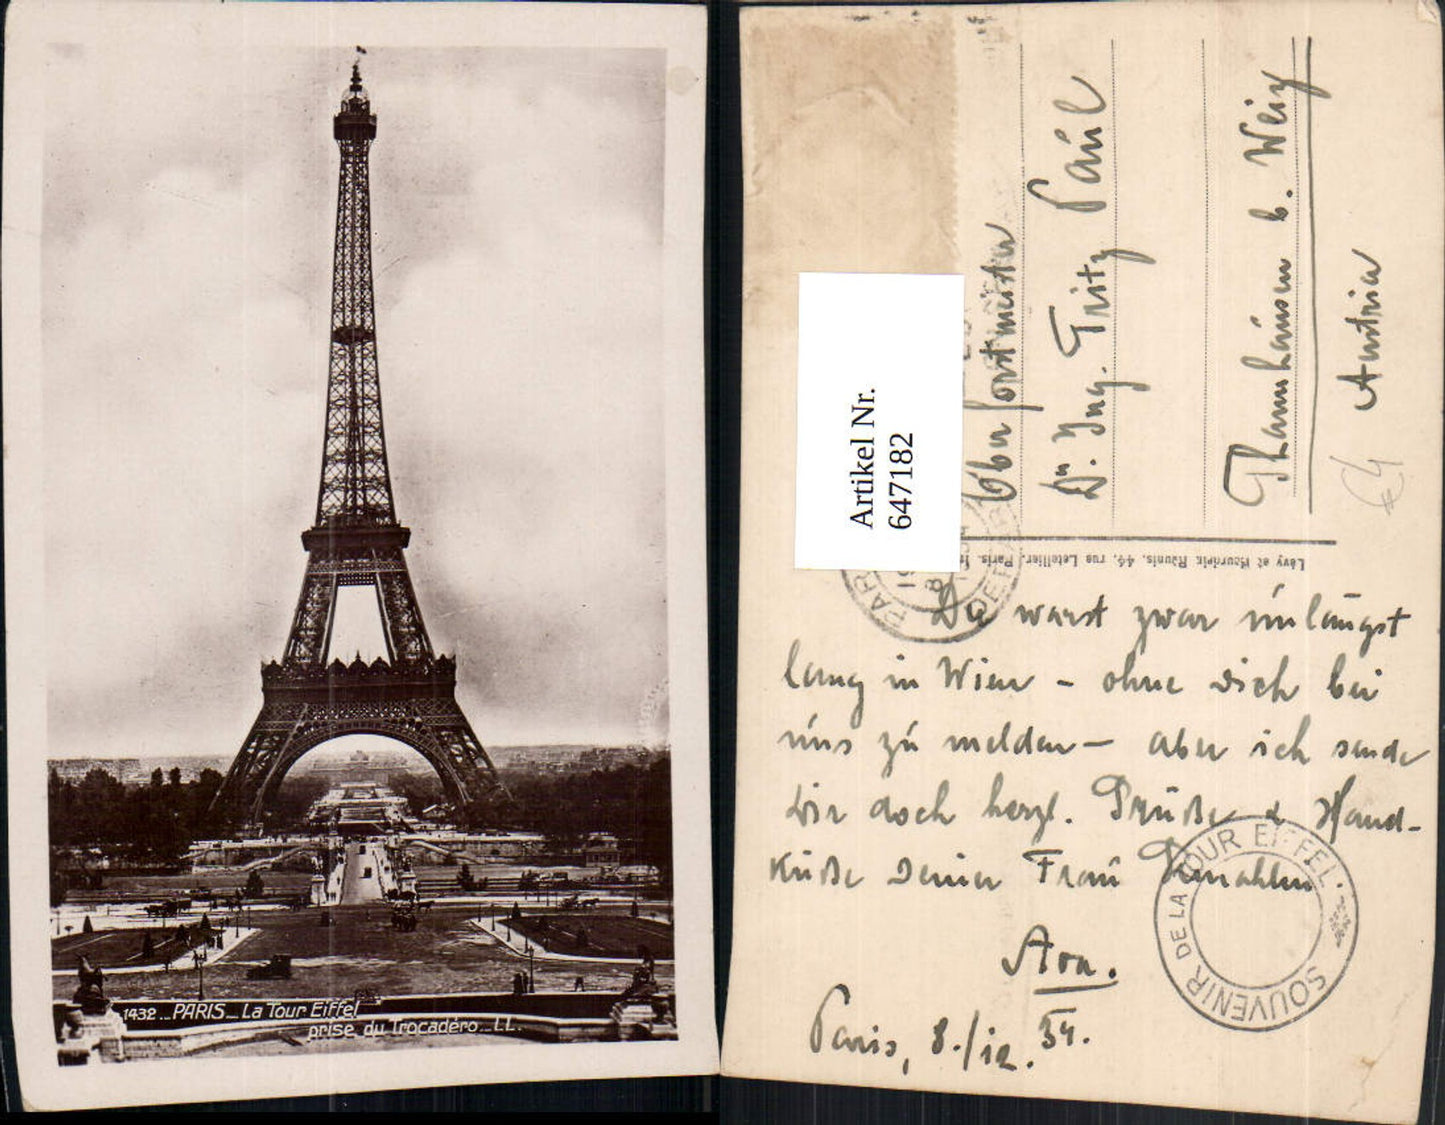 1432 _ PARIS _ La Tour Eiffel
prise du Trocadéro _ LL.
Artikel Nr.
647182
Oberforstmeister
Dr. Ing. Fritz Paul
Thannhausen b. Weiz
Austria
Lévy et Neurdein Réunis, 44, rue Letellier, Paris
Du warst zwar unlängst
lang in Wien – ohne Dich bei
uns zu melden – aber ich sende
Dir doch herzl. Grüße & Hand-
küße Deiner Frau Gemahlin
Paris, 8./12. 34.
SOUVENIR DE LA TOUR EIFFEL